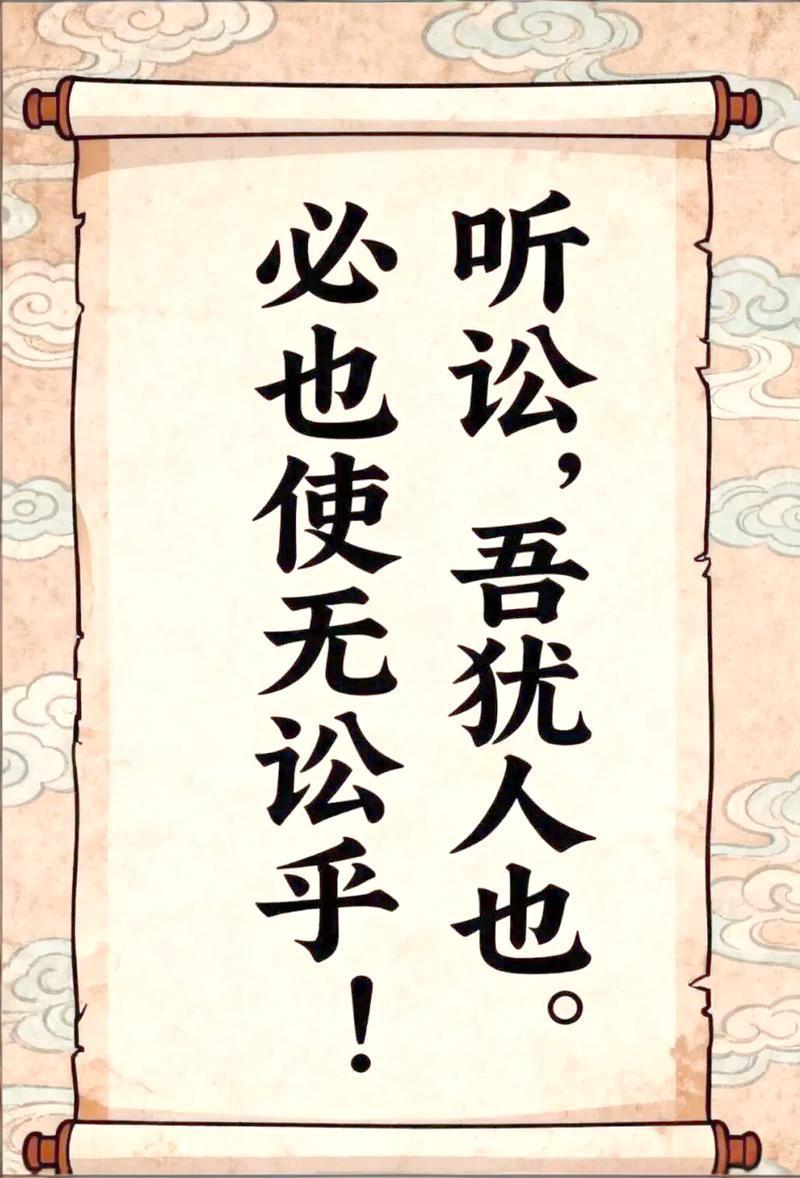 听讼，吾犹人也。
必也使无讼乎！